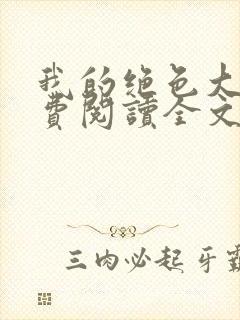 我的绝色大
費閱讀全文
三肉必起牙霸